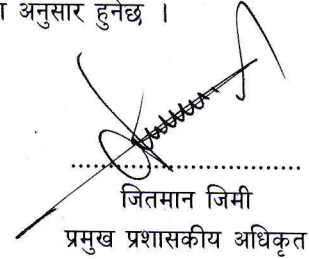 अनुसार हुनेछ ।
जितमान जिमी
प्रमुख प्रशासकीय अधिकृत